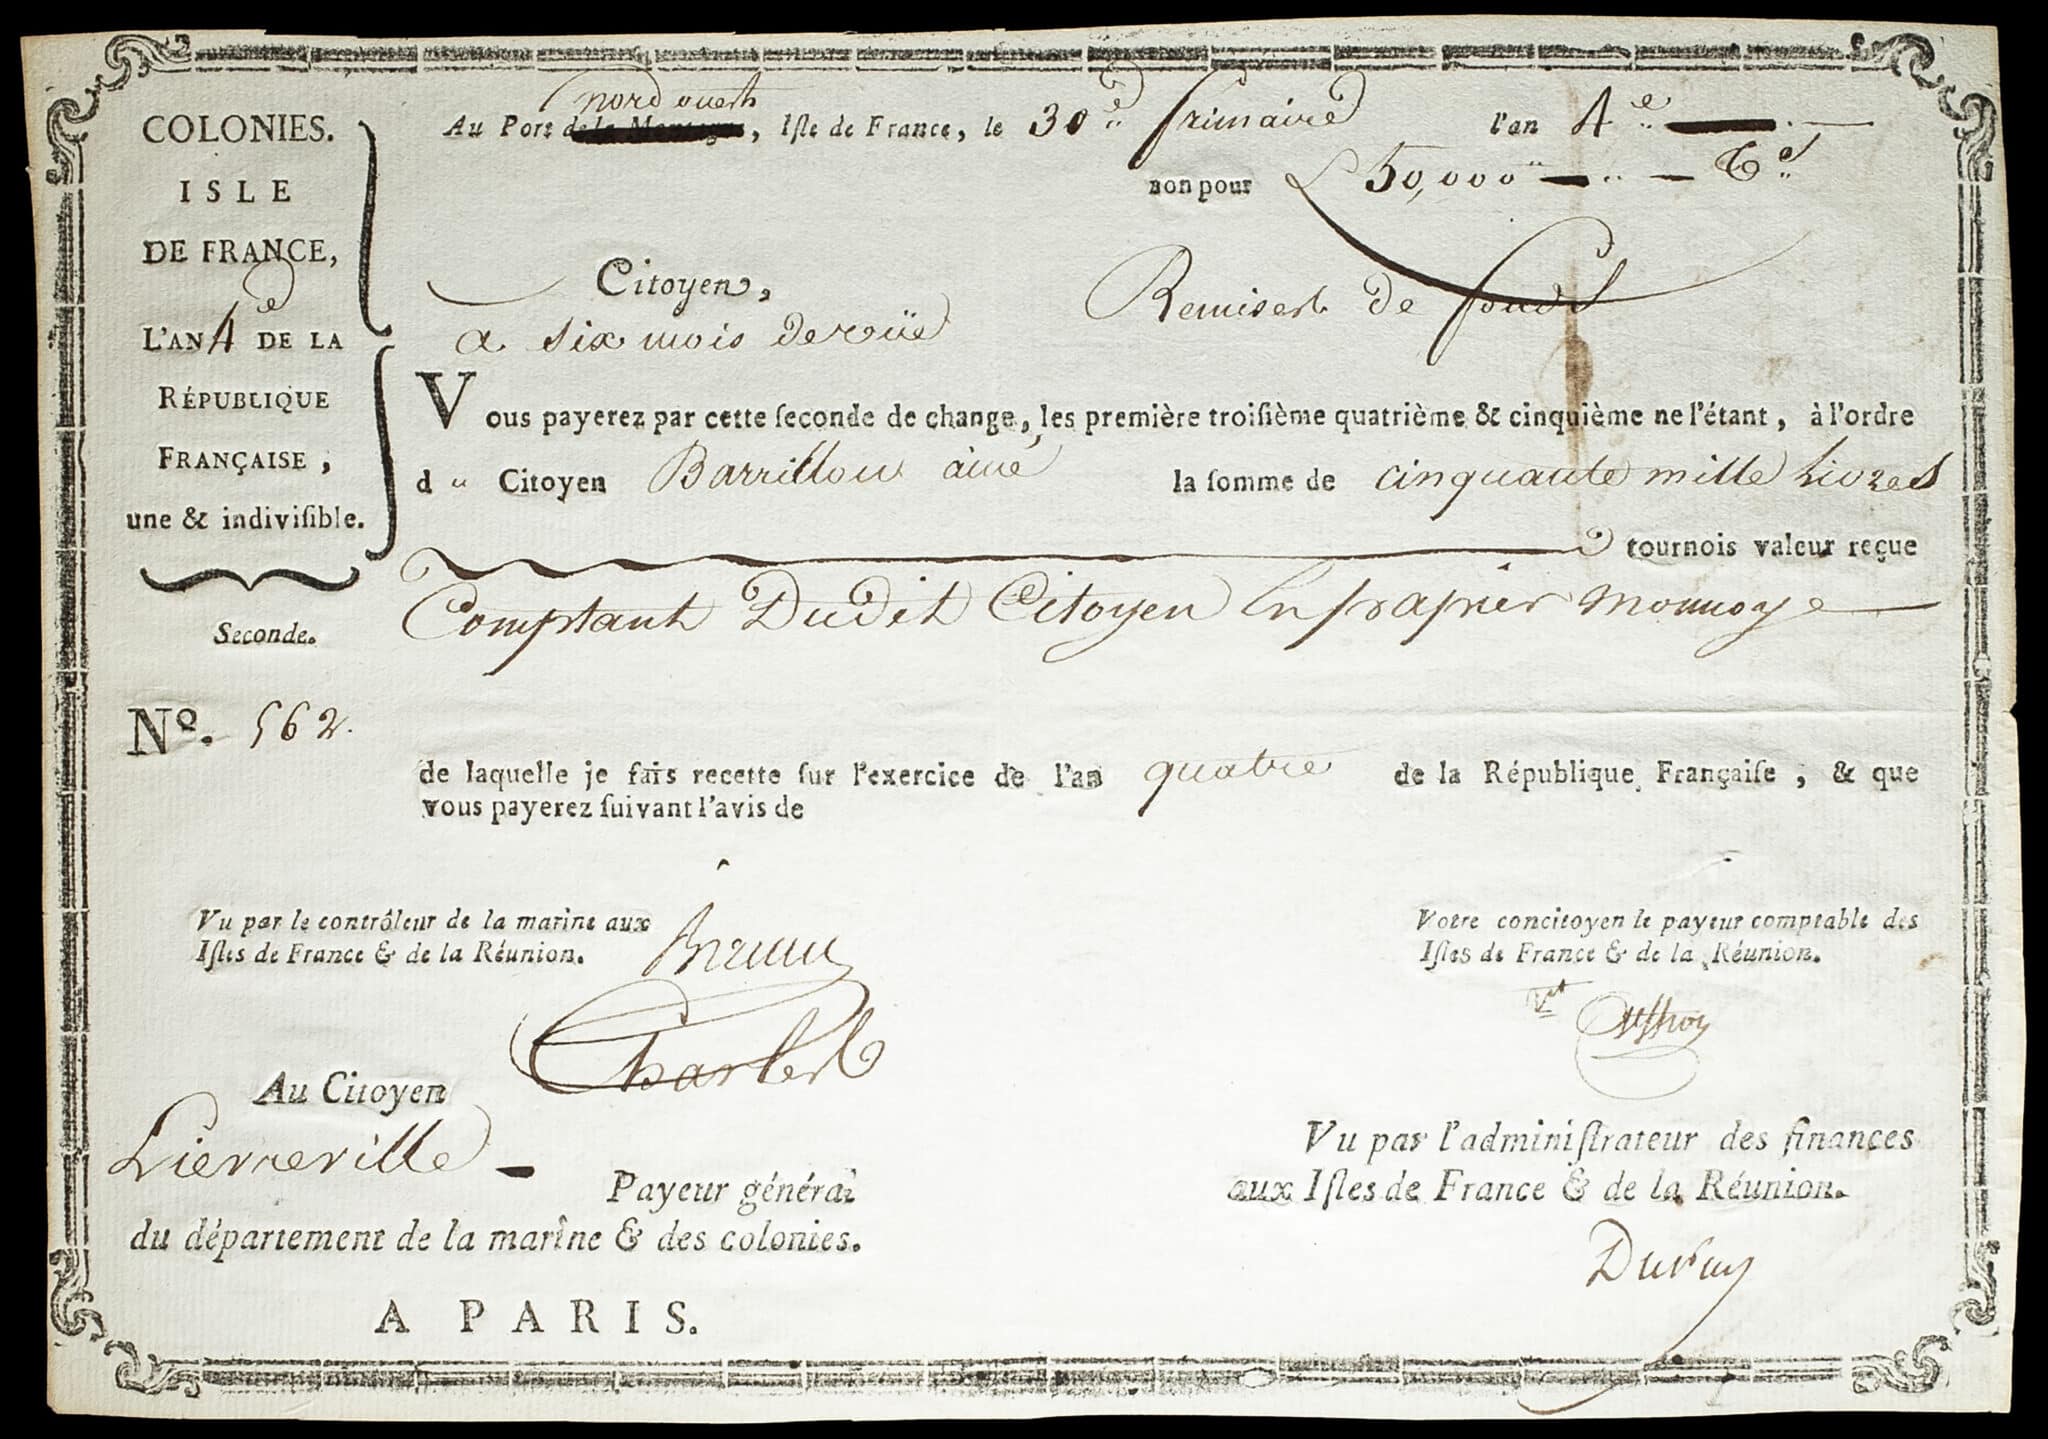 COLONIES.
ISLE
DE FRANCE,
L'AN 4e DE LA
RÉPUBLIQUE
FRANÇAISE,
une & indiviſible.
Seconde.
No. 562.
nord ouest
Au Port de la Montagne, Iſle de France, le 30 frimaire l'an 4e
bon pour £ 50,000
Citoyen,
Remises de fonds
a six mois de vüe
Vous payerez par cette ſeconde de change, les première troiſième quatrième & cinquième ne l'étant, à l'ordre
d u Citoyen Barrillon ainé la ſomme de cinquante mille livres
tournois valeur reçue
Comptant Dudit Citoyen En papier monnoye
de laquelle je fais recette ſur l'exercice de l'an quatre de la République Françaiſe, & que
vous payerez ſuivant l'avis de
Vu par le contrôleur de la marine aux
Iſles de France & de la Réunion.
Votre concitoyen le payeur comptable des
Iſles de France & de la Réunion.
Au Citoyen
Lierreville
Payeur général
du département de la marine & des colonies.
A PARIS.
Vu par l'adminiſtrateur des finances
aux Iſles de France & de la Réunion.
Dupuy